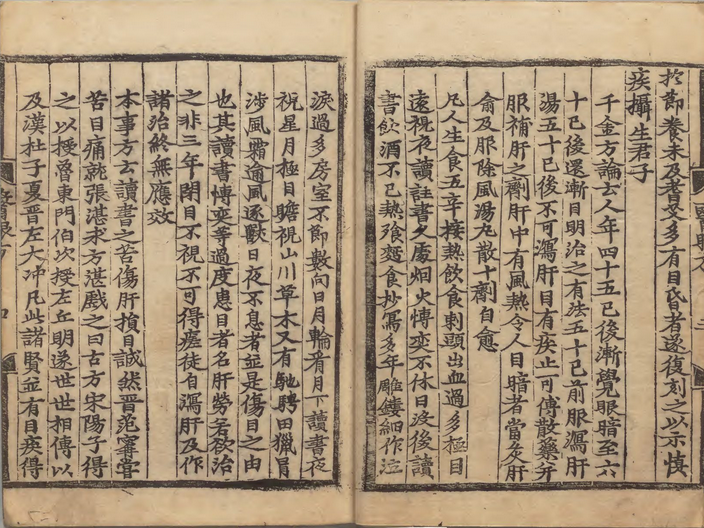 於節養未及耆艾多有目昏者遂復刻之以示慎
疾攝生君子
千金方論士人年四十五已後漸覺眼暗至六
十已後還漸目明治之有法五十已前服瀉肝
湯五十已後不可瀉肝目有疾止可傅散藥并
服補肝之劑肝中有風熱令人目暗者當灸肝
俞及服除風湯丸散十劑自愈
凡人生食五辛接熱飲食刺頭出血過多極目
遠視夜讀註書久處烟火愽奕不休日沒後讀
書飲酒不已熱飡麵食抄寫多年雕鏤細作泣
淚過多房室不節數向日月輪看月下讀書夜
視星月極目瞻視山川草木又有馳騁田獵冐
涉風霜通風逐獸日夜不息者並是傷目之由
也其讀書愽奕等過度患目者名肝勞若欲治
之非三年閉目不視不可得瘥徒自瀉肝及作
諸治終無應效
本事方云讀書之苦傷肝損目誠然晋范寗嘗
苦目痛就張湛求方湛戱之曰古方宋陽子得
之以授魯東門伯次授左丘明遂世世相傳以
及漢杜子夏晋左大冲凡此諸賢並有目疾得